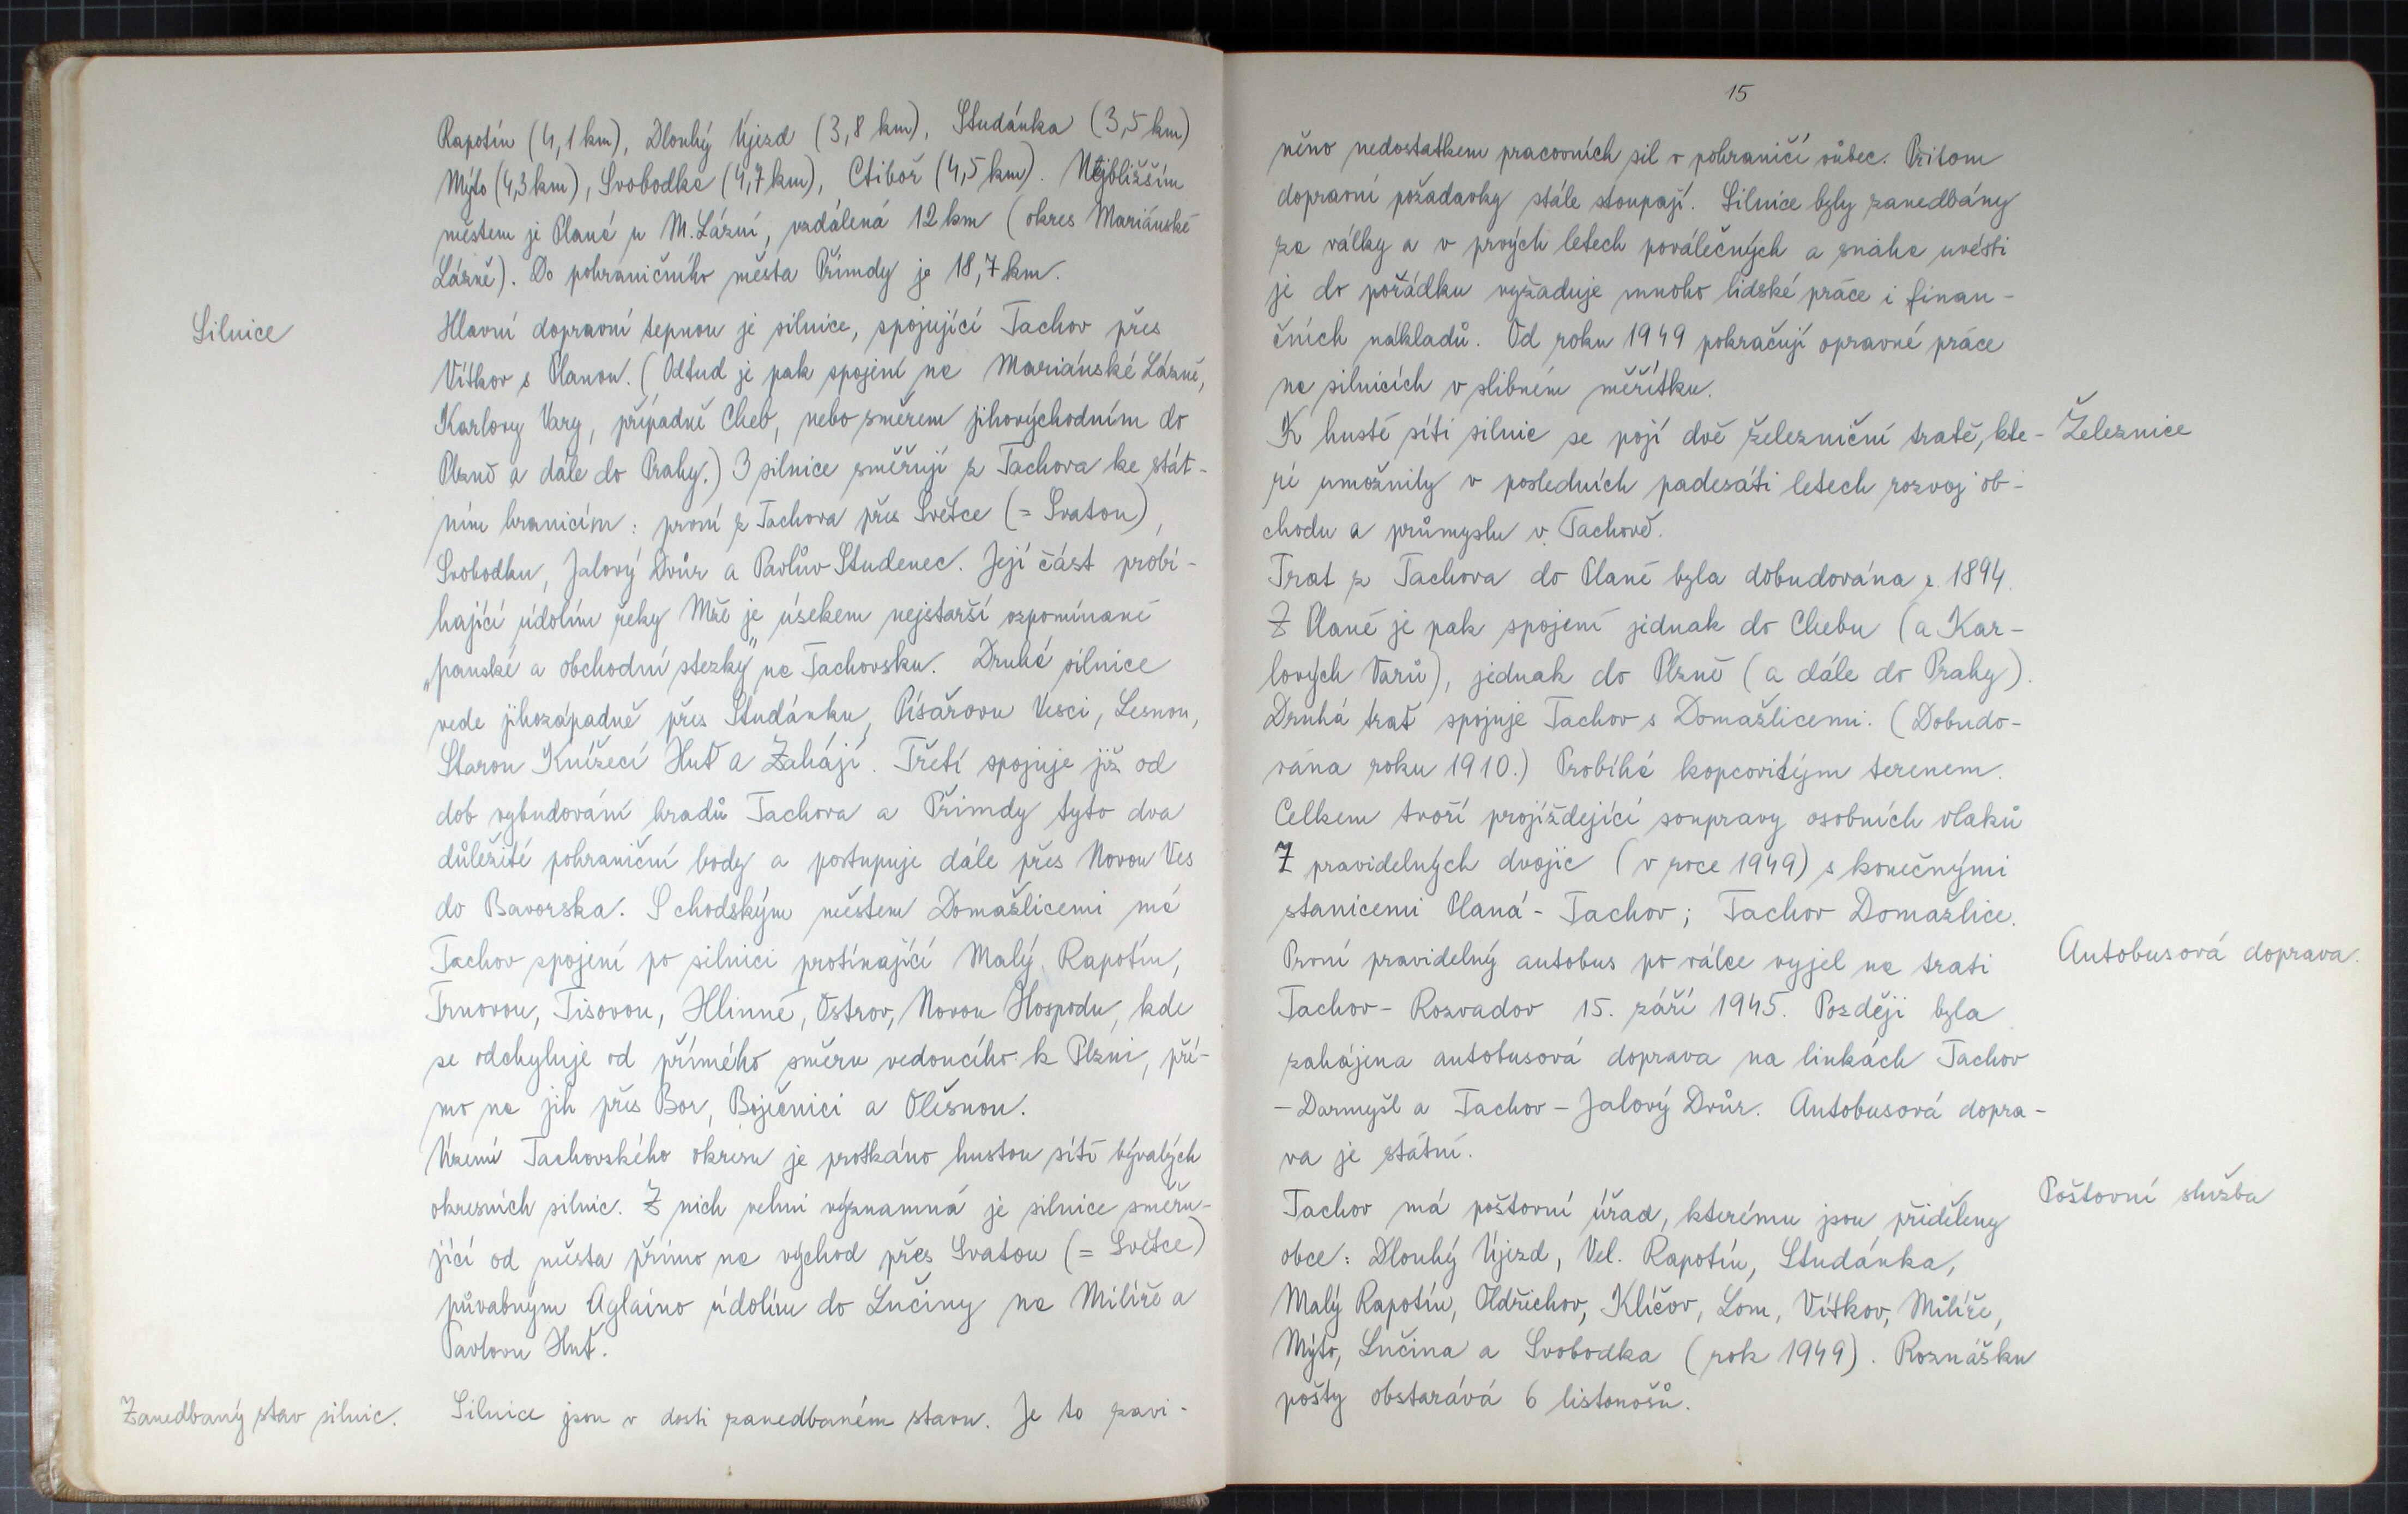 Rapotín (4,1 km), Dlouhý Újezd (3,8 km), Studánka (3,5 km)
Mýto (4,3 km), Svobodka (4,7 km), Ctiboř (4,5 km). Nejbližším
městem je Planá u M. Lázní, vzdálená 12 km (okres Mariánské
Lázně). Do pohraničního města Přimdy je 18,7 km.
Silnice
Hlavní dopravní tepnou je silnice, spojující Tachov přes
Vítkov s Planou. (Odtud je pak spojení na Mariánské Lázně,
Karlovy Vary, případně Cheb, nebo směrem jihovýchodním do
Plzně a dále do Prahy.) 3 silnice směřují z Tachova ke stát-
ním hranicím: první z Tachova přes Světce (= Svatou),
Svobodku, Jalový Dvůr a Pavlův Studenec. Její část probí-
hající údolím řeky Mže je úsekem nejstarší vzpomínané
„panské a obchodní stezky" na Tachovsku. Druhá silnice
vede jihozápadně přes Studánku, Písařovu Vesci, Lesnou,
Starou Knížecí Huť a Zahájí. Třetí spojuje již od
dob vybudování hradů Tachova a Přimdy tyto dva
důležité pohraniční body a postupuje dále přes Novou Ves
do Bavorska. S chodským městem Domažlicemi má
Tachov spojení po silnici protínající Malý Rapotín,
Trnovou, Tisovou, Hlinné, Ostrov, Novou Hospodu, kde
se odchyluje od přímého směru vedoucího k Plzni, pří-
mo na jih přes Bor, Boječnici a Olešnou.
Území Tachovského okresu je protkáno hustou sítí bývalých
okresních silnic. Z nich velmi významná je silnice směřu-
jící od města přímo na východ přes Svatou (= Světce)
půvabným Aglaino údolím do Lučiny na Milíře a
Pavlovu Huť.
Zanedbaný stav silnic.
Silnice jsou v dosti zanedbaném stavu. Je to zavi-
15
něno nedostatkem pracovních sil v pohraničí vůbec. Přitom
dopravní požadavky stále stoupají. Silnice byly zanedbány
za války a v prvých letech poválečných a snaha uvésti
je do pořádku vyžaduje mnoho lidské práce i finan-
čních nákladů. Od roku 1949 pokračují opravné práce
na silnicích v slibném měřítku.
K husté síti silnic se pojí dvě železniční tratě, kte-
Železnice
ré umožnily v posledních padesáti letech rozvoj ob-
chodu a průmyslu v Tachově.
Trat z Tachova do Plané byla dobudována r. 1894.
Z Plané je pak spojení jednak do Chebu (a Kar-
lových Varů), jednak do Plzně (a dále do Prahy).
Druhá trať spojuje Tachov s Domažlicemi. (Dobudo-
vána roku 1910.) Probíhá kopcovitým terenem.
Celkem tvoří projíždějící soupravy osobních vlaků
7 pravidelných dvojic (v roce 1949) s konečnými
stanicemi Planá - Tachov; Tachov Domažlice.
První pravidelný autobus po válce vyjel na trati
Autobusová doprava.
Tachov - Rozvadov 15. září 1945. Později byla
zahájena autobusová doprava na linkách Tachov
- Darmyšl a Tachov - Jalový Dvůr. Autobusová dopra-
va je státní.
Tachov má poštovní úřad, kterému jsou přiděleny
Poštovní služba
obce: Dlouhý Újezd, Vel. Rapotín, Studánka,
Malý Rapotín, Oldřichov, Klíčov, Lom, Vítkov, Milíře,
Mýto, Lučina a Svobodka (rok 1949). Roznášku
pošty obstarává 6 listonošů.